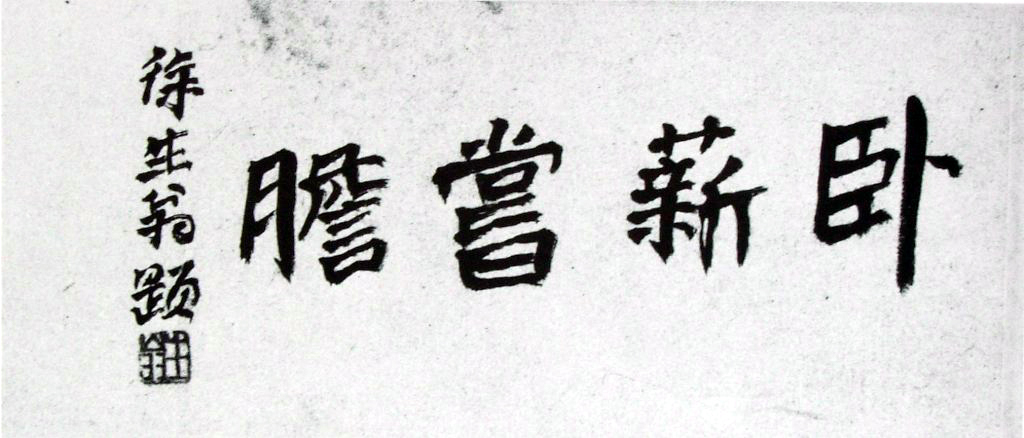 卧薪嘗膽
徐生翁题